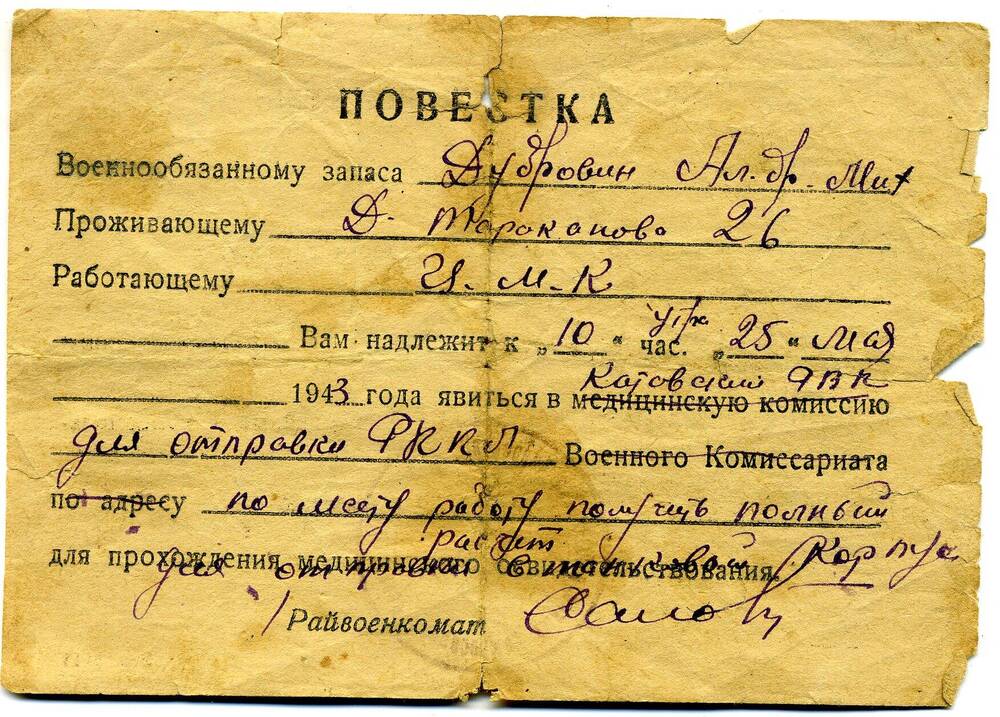 ПОВЕСТКА
Военнообязанному запаса Дубровин Ал.др. Мих
Проживающему Д. Тараканова 26
Работающему Ц.М.К
утра
Вам надлежит к „10“ час. „25“ Мая
Котовский РВК
1943 года явиться в медицинскую комиссию
для отправки РККА Военного Комиссариата
по адресу по месту работу получить полный
расчет
для прохождения медицинского освидетельствования.
для отправки в танковой Корпус
Райвоенкомат